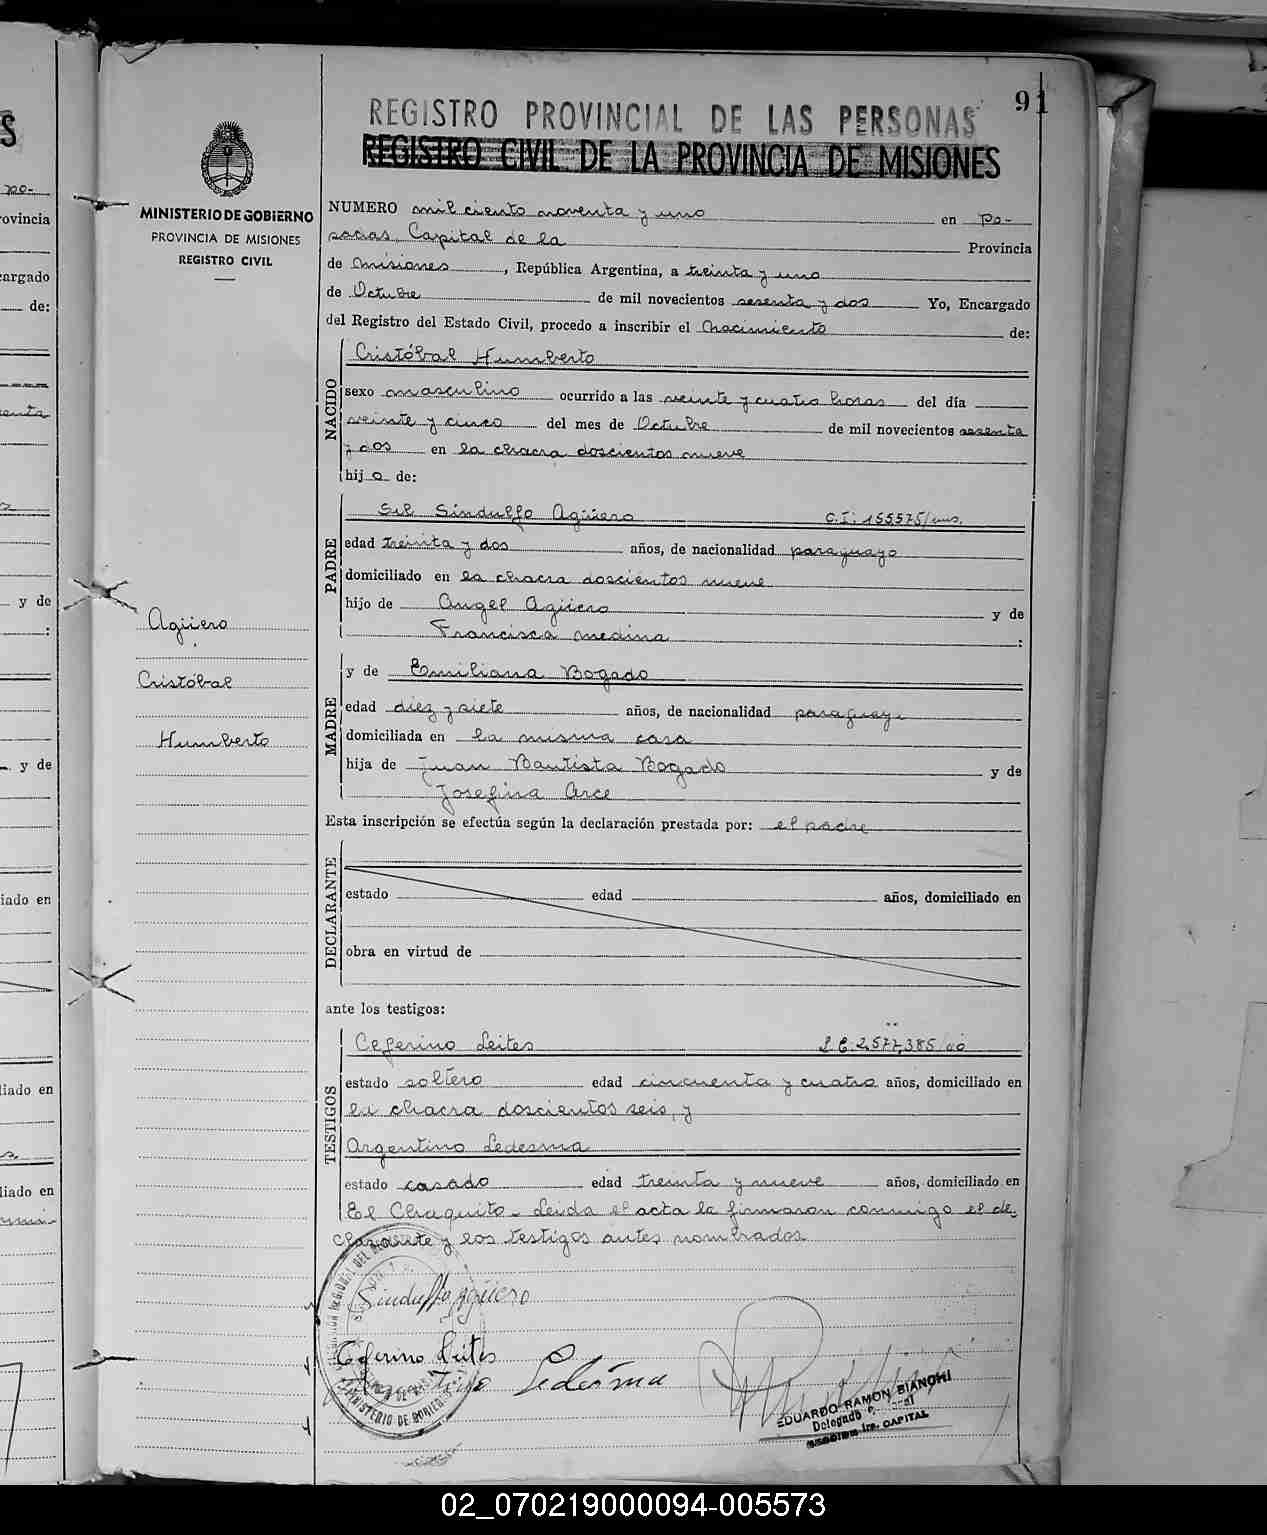 91
REGISTRO PROVINCIAL DE LAS PERSONAS
REGISTRO CIVIL DE LA PROVINCIA DE MISIONES
MINISTERIO DE GOBIERNO
PROVINCIA DE MISIONES
REGISTRO CIVIL
NUMERO mil ciento noventa y uno en Po-
sadas, Capital de la Provincia
de Misiones, República Argentina, a treinta y uno
de Octubre de mil novecientos sesenta y dos Yo, Encargado
del Registro del Estado Civil, procedo a inscribir el Nacimiento de:
NACIDO
Cristóbal Humberto
sexo masculino ocurrido a las veinte y cuatro horas del día
veinte y cinco del mes de Octubre de mil novecientos sesenta
y dos en la chacra doscientos nueve
hijo de:
PADRE
Sindulfo Agüero C.I. 155575
edad treinta y dos años, de nacionalidad paraguayo
domiciliado en la chacra doscientos nueve
hijo de Angel Agüero y de
Francisca Medina :
MADRE
y de Emiliana Bogado
edad diez y siete años, de nacionalidad paraguaya
domiciliada en la misma casa
hija de Juan Bautista Bogado y de
Josefina Arce
Agüero
Cristóbal
Humberto
Esta inscripción se efectúa según la declaración prestada por: el padre
DECLARANTE
estado edad años, domiciliado en
obra en virtud de
ante los testigos:
TESTIGOS
Ceferino Leites 2.577.385
estado soltero edad cincuenta y cuatro años, domiciliado en
la chacra doscientos seis, y
Argentino Ledesma
estado casado edad treinta y nueve años, domiciliado en
El Chaquito. Leida el acta la firmaron conmigo el de-
clarante y los testigos antes nombrados
Sindulfo Agüero
Ceferino Leites
Ledesma
EDUARDO RAMON BIANCHI
Delegado
CAPITAL
MINISTERIO DE GOBIERNO
S
po-
rovincia
cargado
de:
enta
y de
:
y de
iado en
liado en
liado en
02_070219000094-005573